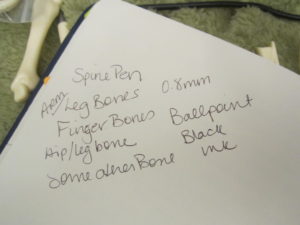 Spine Pen
Arm/Leg Bones 0.8mm
Finger Bones Ballpoint
Hip/leg bone Black
Some other Bone ink